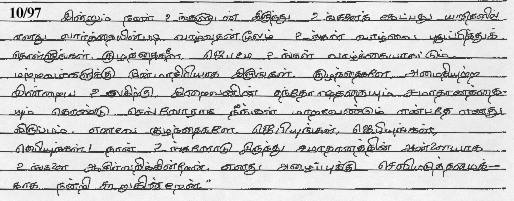 10/97 இன்றும் நான் உங்களுடன் இருந்து உங்களைக் கேட்பது யாதெனில்
எனது வார்த்தையின்படி வாழ்வதன்மூலம் உங்கள் வாழ்வை புதுப்பித்துக்
கொள்ளுங்கள். குழந்தைகளே, ஜெபமே உங்கள் வாழ்க்கையாகட்டும்
மற்றவர்களுக்கு முன்மாதிரியாக இருங்கள். குழந்தைகளே அமைதியற்ற
இன்றைய உலகிற்கு இறைவனின் சந்தோஷத்தையும் சமாதானத்தை
யும் கொண்டு செல்வோராக நீங்கள் மாறவேண்டும் என்பதே எனது
விருப்பம். எனவே குழந்தைகளே, ஜெபியுங்கள், ஜெபியுங்கள்,
ஜெபியுங்கள்! நான் உங்களோடு இருந்து சமாதானத்தின் அன்னையாக
உங்களை ஆசீர்வதிக்கின்றேன். எனது அழைப்புக்கு செவிமடுத்தமைக்
காக நன்றி கூறுகின்றேன்"